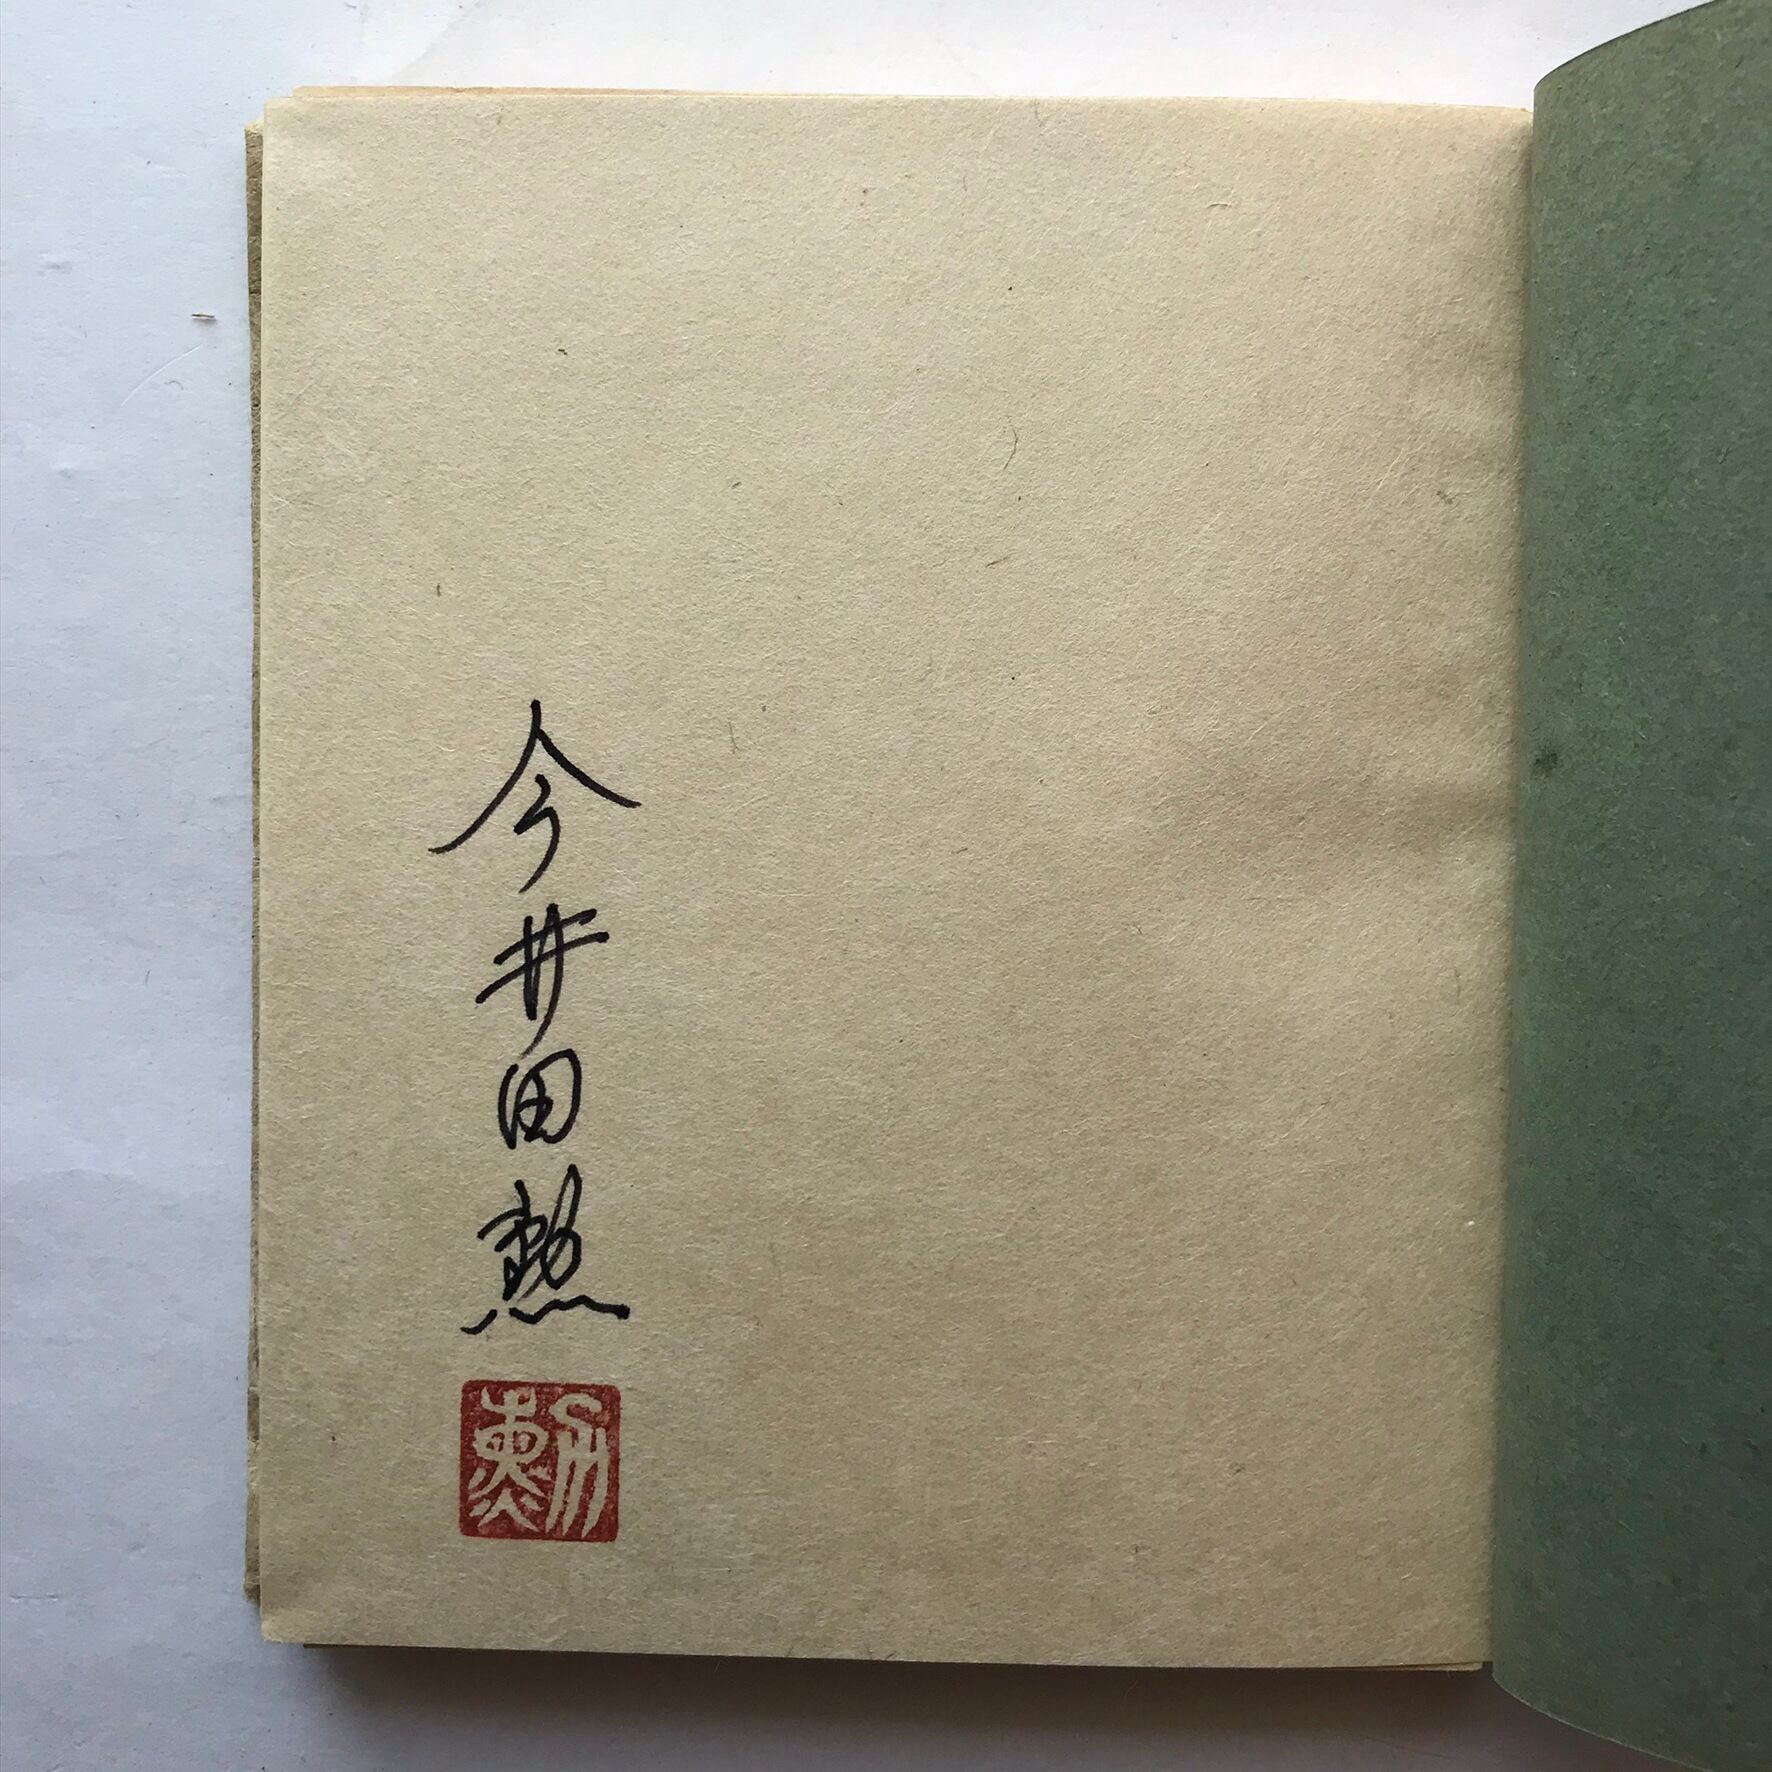 今井田勲
勲